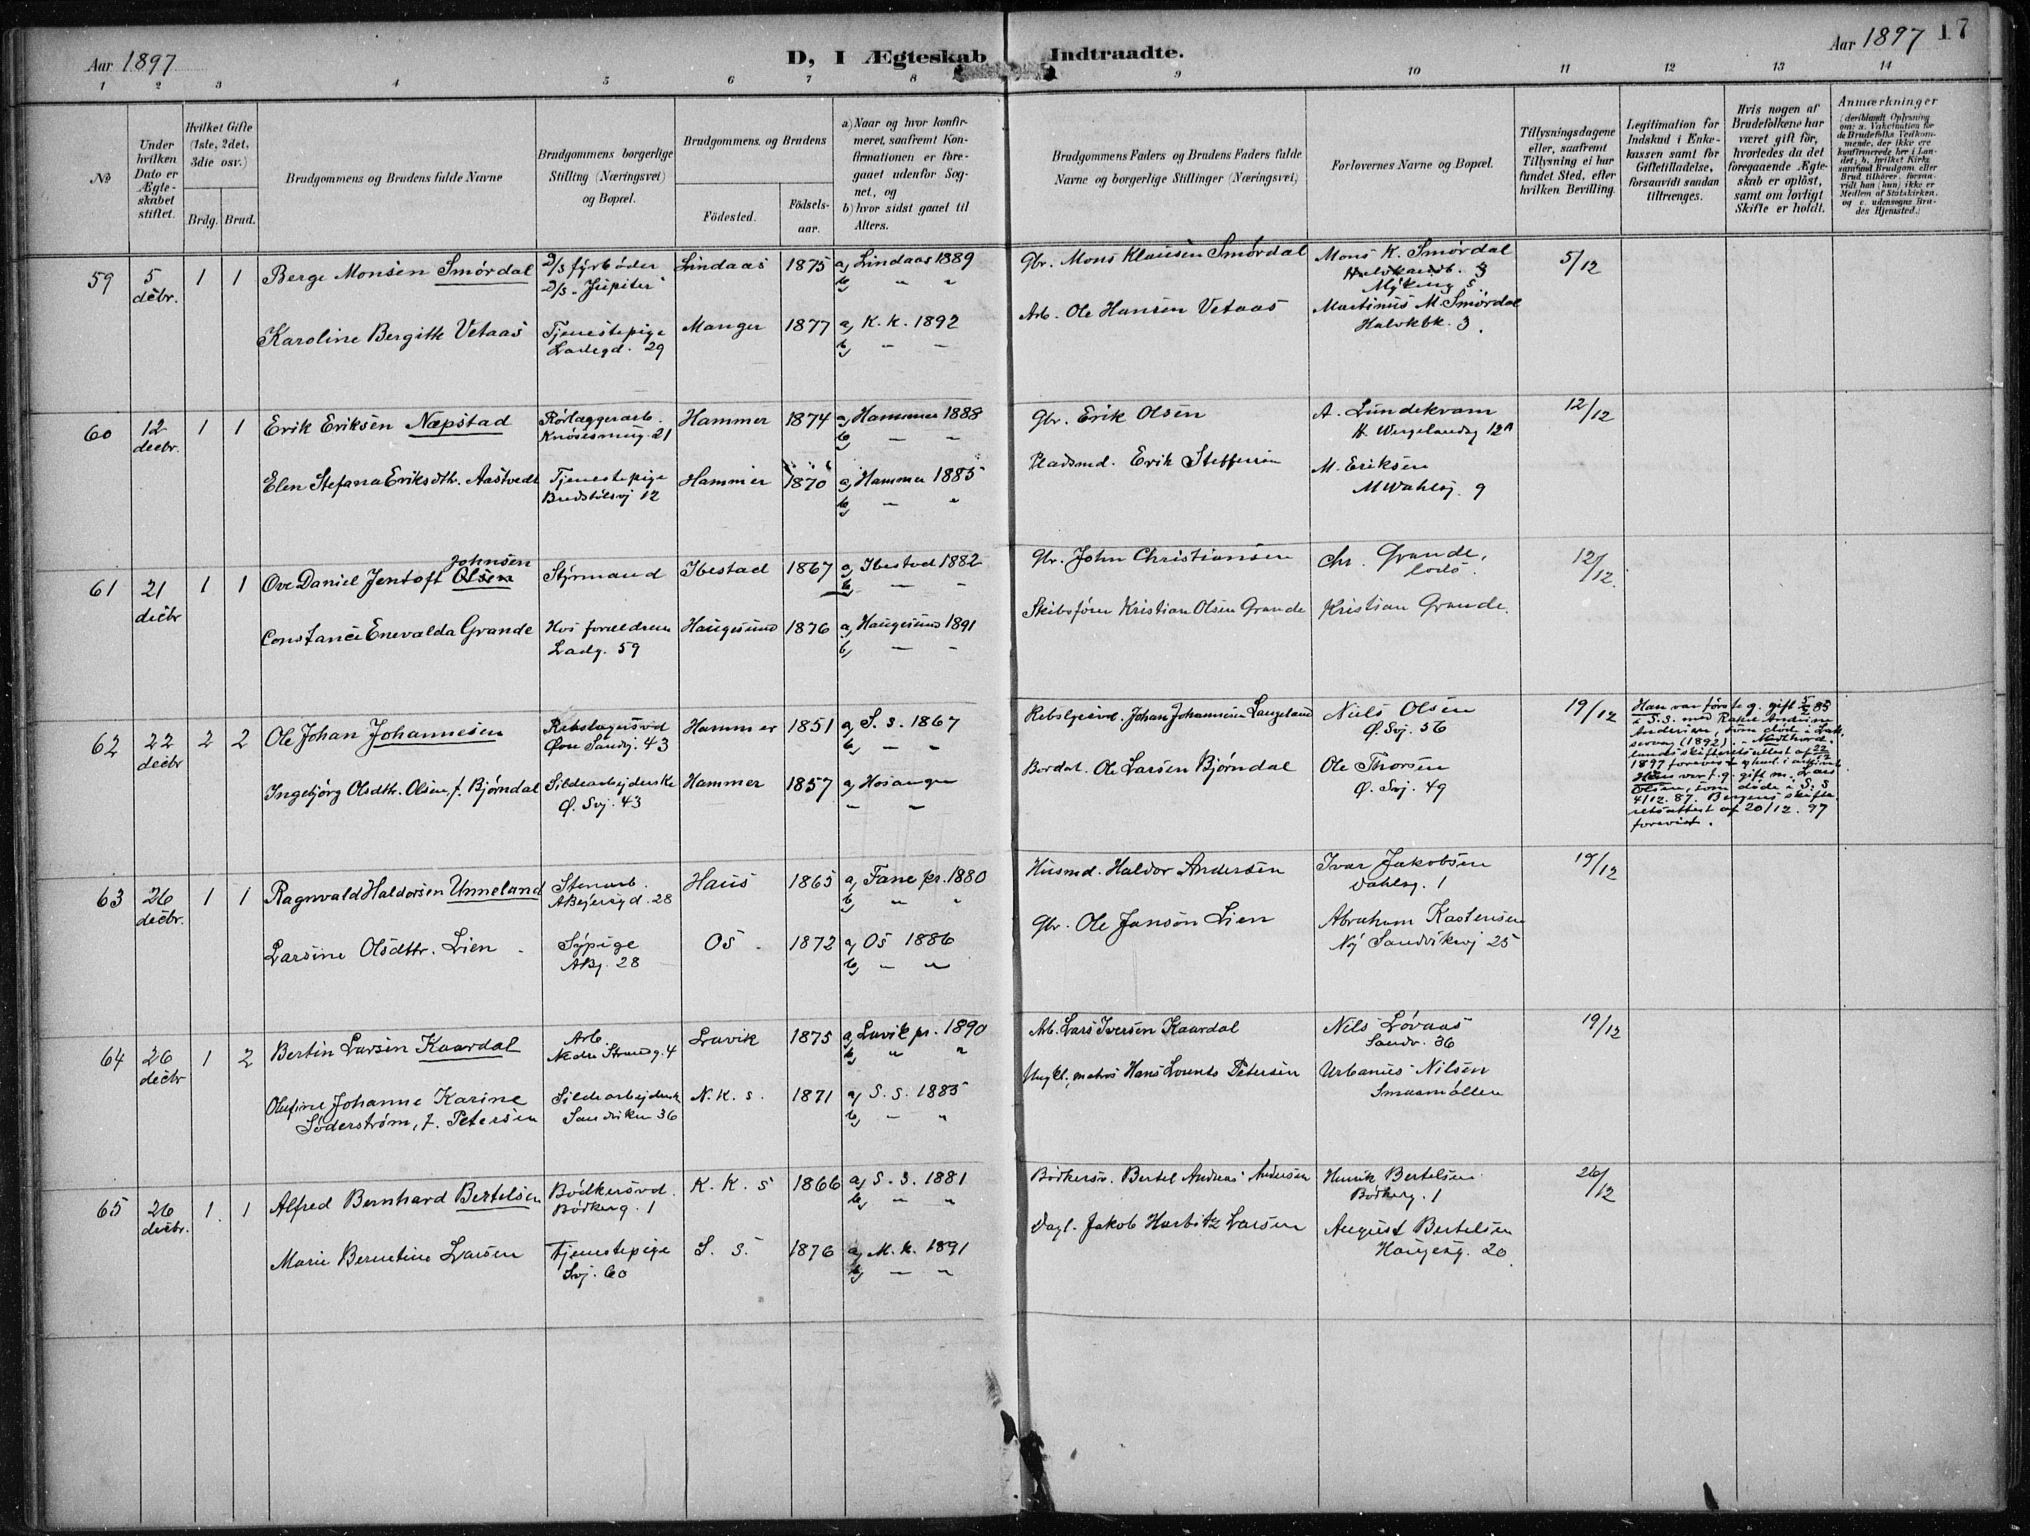 Aar 1897
D, I Ægteskab Indtraadte.
Aar 1897 17
1 2 3 4 5 6 7 8 9 10 11 12 13 14
No
Under hvilken Dato er Ægteskabet stiftet.
Hvilket Gifte (1ste, 2det, 3die osv.)
Brdg. Brud.
Brudgommens og Brudens fulde Navne
Brudgommens borgerlige Stilling (Næringsvei) og Bopæl.
Brudgommens og Brudens
Födested.
Födselsaar.
a) Naar og hvor konfirmeret, saafremt Konfirmationen er foregaaet udenfor Sognet, og
b) hvor sidst gaaet til Alters.
Brudgommens Faders og Brudens Faders fulde Navne og borgerlige Stillinger (Næringsvei)
Forlovernes Navne og Bopæl.
Tillysningsdagene eller, saafremt Tillysning ei har fundet Sted, efter hvilken Bevilling.
Legitimation for Indskud i Enkekassen samt for Giftetilladelse, forsaavidt saadan tiltrænges.
Hvis nogen af Brudefolkene har været gift för, hvorledes da det foregaaende Ægteskab er oplöst, samt om lovligt Skifte er holdt.
Anmærkninger
(deriblandt Oplysning om: a. Vakcination for de Brudefolks Vedkommende, der ikke ere konfirmerede her i Landet; b. hvilket Kirkesamfund Brudgom eller Brud tilhörer, forsaavidt han (hun) ikke er Medlem af Statskirken, og c. udensogns Brudes Hjemsted.)
59 5 decbr. 1 1 Berge Monsen Smørdal D/S fyrbøder D/S „Jupiter" Lindaas 1875 a) Lindaas 1889 b) " " Gbr. Mons Klausen Smørdal Mons K. Smørdal 5/12
Karoline Bergitte Vetaas Tjenestepige Ladegd. 29 Manger 1877 a) K. k. 1892 b) " – Arb. Ole Hansen Vetaas Martinus M. Smørdal Halvkbk. 3.
60 12 decbr. 1 1 Erik Eriksen Næpstad Rörlæggerarb. Knøsesmug. 21 Hammer 1874 a) Hammer 1888 b) – " Gbr. Erik Olsen A. Lundekvam H. Wergelandsg 12A 12/12
Elen Stefana Eriksdtr. Aastvedt Tjenestepige Hammer 1870 a) Hammer 1885 b) – " Pladsmd. Erik Steffensen M. Eriksen M Wahlsg. 9
61 21 decbr 1 1 Ove Daniel Jentoft Olsen Johnsen Styrmand Ibestad 1867 a) Ibestad 1882 b) – – Gbr. John Christiansen Chr. Grande, lods. 12/12.
Constance Enevalda Grande Hos forældrene Ladg. 59 Haugesund 1876 a) Haugesund 1891 b) – – Skibsfører Kristian Olsen Grande Kristian Grande.
62 22 decbr 2 2 Ole Johan Johannesen Rebslagersvd Øvre Sandvg. 43 Hammer 1851 a) S. s. 1867 b) – " Rebslgersvd. Johan Johannesen Langeland Niels Olsen Ø. Svj. 56 19/12
Ingebjørg Olsdtr. Olsen, f. Bjørndal Sildearbejderske Ø. Svj. 43 Hammer 1857 a) Hosanger – " Ole Larsen Bjørndal Ole Thorsen Ø. Svj. 49
Han var første g. gift 5/2 85
i S.S. med Rakel Andrine
1897 forevist
f. g. gift m. Lars
Olsen, som døde i S. S
4/12. 87. Bergens skifte
retsattest af 20/12. 97
forevist.
63 26 decbr. 1 1 Ragnvald Haldorsen Unneland Stenarb. Haus 1865 a) Fane pr. 1880 b) " " Husmd. Haldor Andersen Ivar Jakobsen Dahlsg. 1 19/12
Larsine Olsdttr. Lien Sypige 28 Os 1872 a) Os 1886 b) – " Gbr. Ole Janson Lien Abraham Kastensen Ny Sandviksvj 25
64 26 decbr 1 2 Bertin Larsen Kaardal Arb. Nedre Strandg. 4 Lavik 1875 a) Lavik pr. 1890 b) " " Arb. Lars Iversen Kaardal Nils Løvaas Sandv. 36 19/12
Olufine Johanne Karine Søderstrøm, f. Petersen Sildearbejdersk Sandviken 36 N. K. s. 1871 a) S. S. 1885 b) – " Ungkl, matros Hans Lorents Petersen Urbanus Nilsen
65 26 decbr. 1. 1 Alfred Bernhard Bertelsen Bødkersvd. Bødkerg. 1 K. K. s 1866 a) S. S. 1881 b) – " Bødkersv. Bertel Andreas Andersen Henrik Bertelsen Bødkerg. 1 26/12
Marie Berntine Larsen Tjenestepige Svj. 60 S. S. 1876 a) M. k. 1891 b) – " Dagl. Jakob Harbitz Larsen August Bertelsen Haugesg. 20.